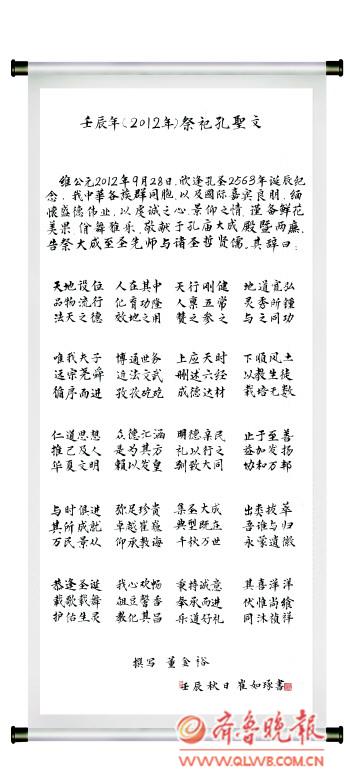 壬辰年(2012年)祭祀孔聖文
維公元2012年9月28日，欣逢孔圣2563年诞辰纪
念，我中華各族群同胞，以及國際嘉宾良朋，缅
懷盛德伟业，以虔诚之心，景仰之情，谨备鲜花
美果，佾舞雅乐，敬献于孔庙大成殿暨两廡，
告祭大成至圣先师与诸圣哲賢儒。其辞曰：
天地設位 人在其中 天行刚健 地道宜弘
品物流行 化育功隆 人禀五常 灵秀所鍾
法天之德 效地之用 赞之参之 与之同功
唯我夫子 博通世务 上应天时 下順风土
远宗尧舜 近法文武 删述六经 以教生徒
循序而进 孜孜矻矻 成德达材 栽培无数
仁道思想 众德汇涵 明德亲民 止于至善
推己及人 是为其方 礼以行之 益加发扬
华夏文明 賴以发皇 别致大同 协和万邦
与时俱进 弥足珍贵 集圣大成 出类拔萃
其所成就 卓越崔巍 典型既在 吾谁与归
万民景从 仰承教诲 千秋万世 永蒙遺徽
恭逢圣诞 我心欢畅 秉持诚意 其喜洋洋
载歌载舞 俎豆馨香 奉承而进 伏惟尚飨
护佑生灵 教化其昌 乐道好礼 同沐祯祥
撰写 董金裕
壬辰秋日 崔如琢書
齐鲁晚报
WWW.QLWB.COM.CN